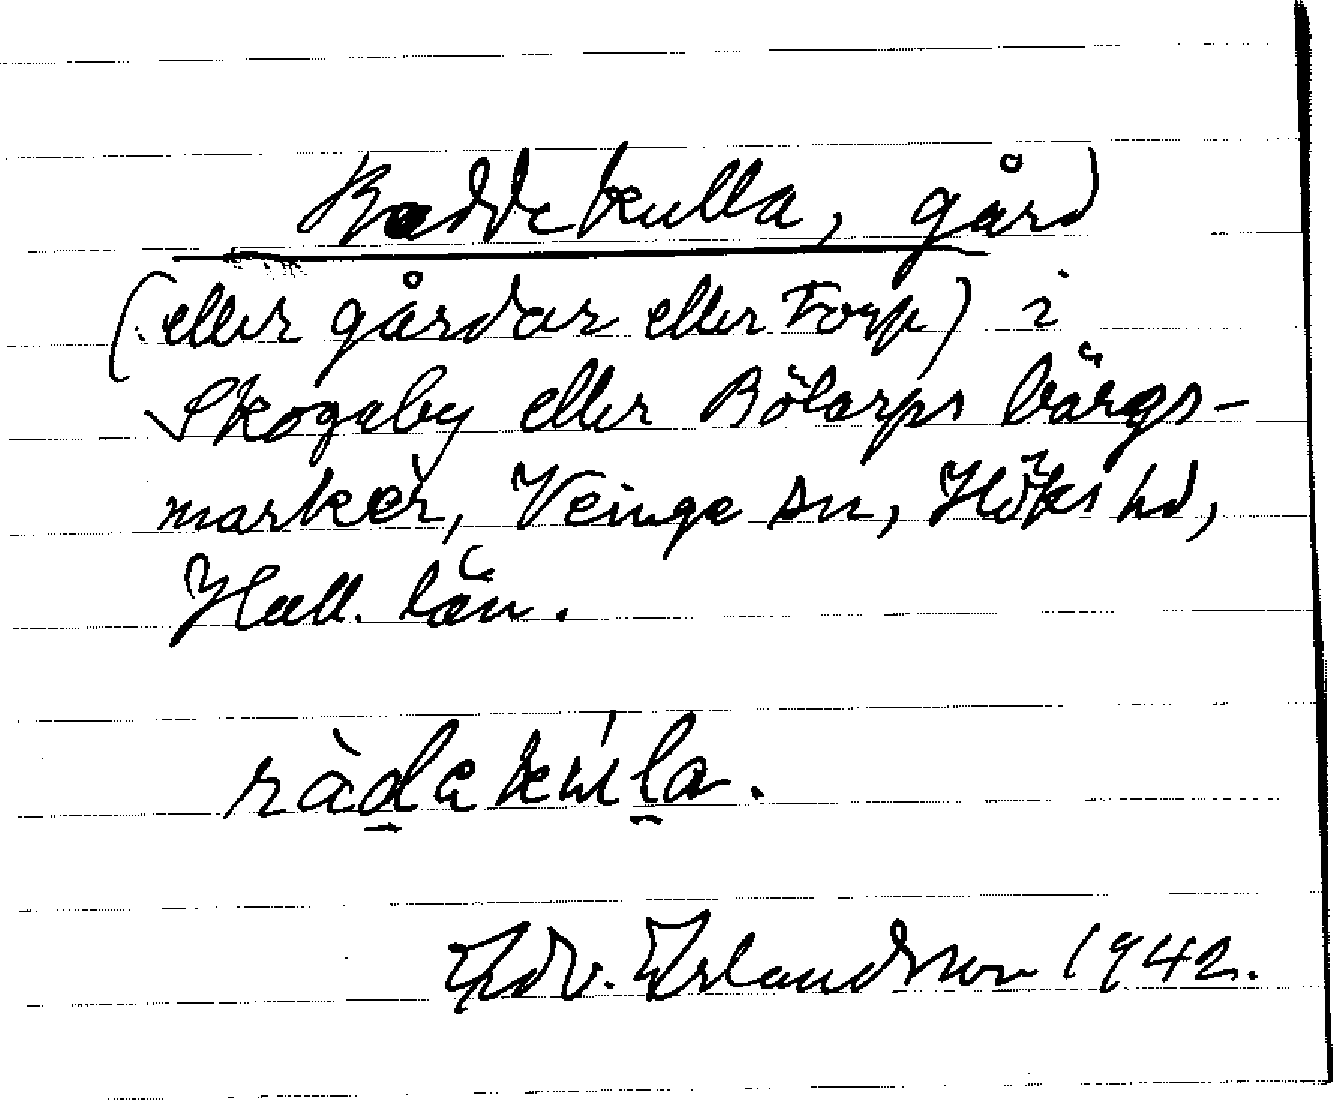 Raddekulla, gård
(eller gårdar eller torp) i
Skogaby eller Bölarps bärgs-
marker, Veinge sn, Höks hd,
Hall. län.
ràdekúla.
Edv. Erlandsson 1942.